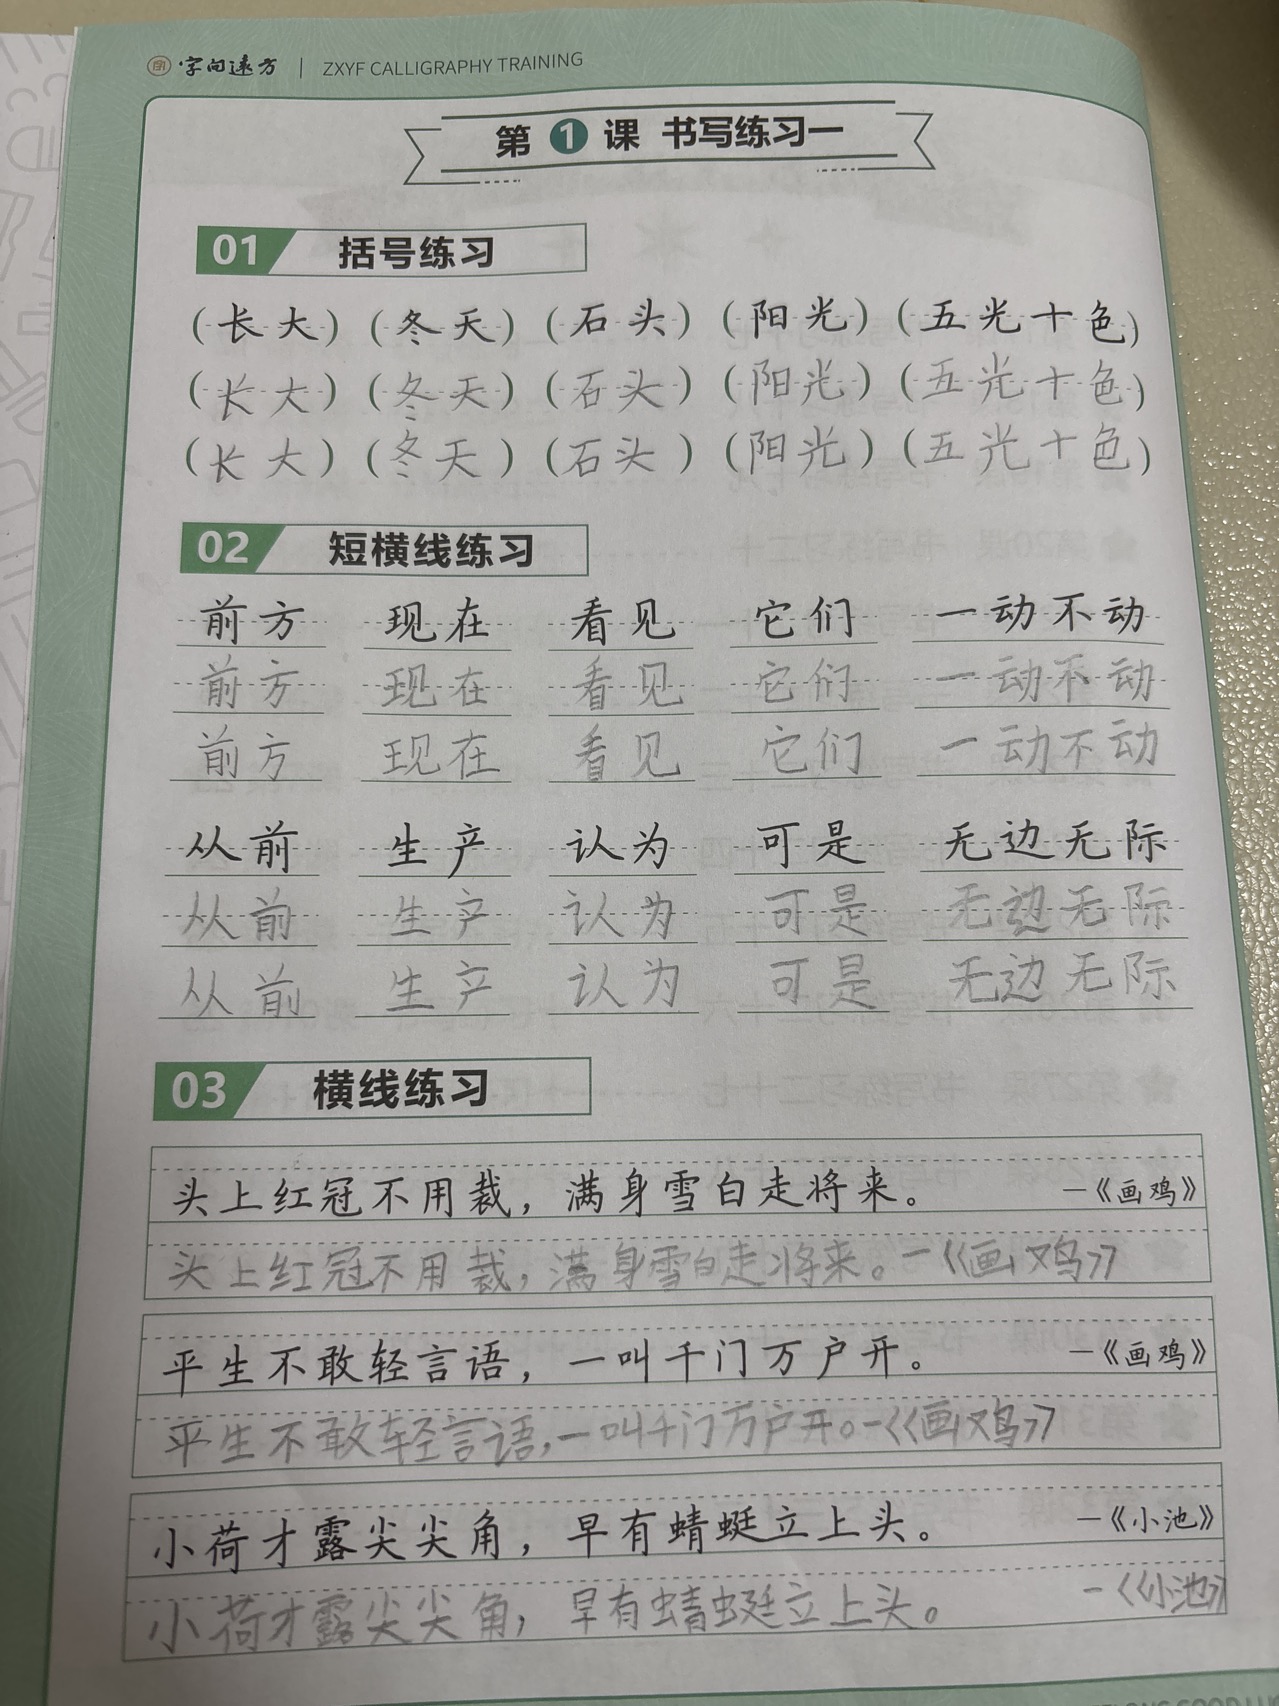 字向远方 | ZXYF CALLIGRAPHY TRAINING
第1课 书写练习一
01 括号练习
(长大) (冬天) (石头) (阳光) (五光十色)
(长大) (冬天) (石头) (阳光) (五光十色)
(长大) (冬天) (石头) (阳光) (五光十色)
02 短横线练习
前方 现在 看见 它们 一动不动
前方 现在 看见 它们 一动不动
前方 现在 看见 它们 一动不动
从前 生产 认为 可是 无边无际
从前 生产 认为 可是 无边无际
从前 生产 认为 可是 无边无际
03 横线练习
头上红冠不用裁，满身雪白走将来。 —《画鸡》
头上红冠不用裁，满身雪白走将来。—《画鸡》
平生不敢轻言语，一叫千门万户开。 —《画鸡》
平生不敢轻言语，一叫千门万户开。—《画鸡》
小荷才露尖尖角，早有蜻蜓立上头。 —《小池》
小荷才露尖尖角，早有蜻蜓立上头。 —《小池》